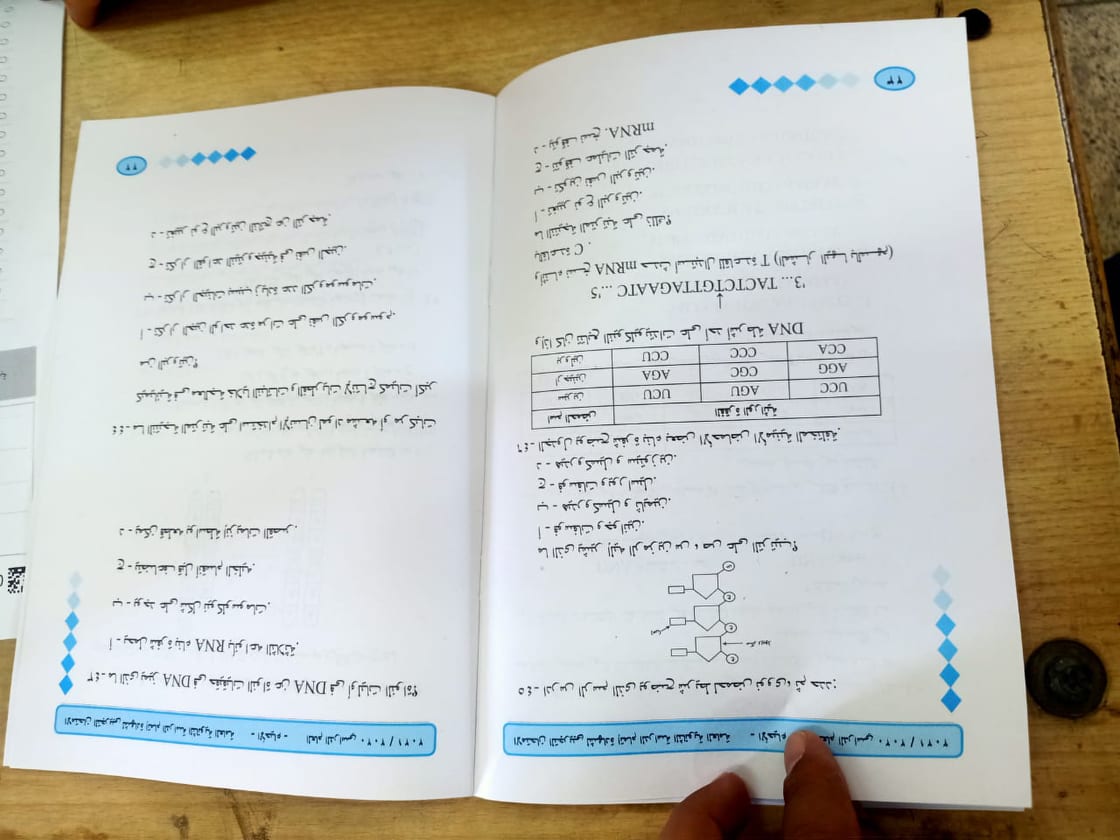 الامتحان التجريبى لشهادة إتمام الدراسة الثانوية العامة - الأحياء - العام الدراسي ٢٠٢٠ / ٢٠٢١
٤٣- ما الذى يميز DNA فى حقيقيات النواة عن DNA فى أوليات النواة؟
أ - يحمل شفرة بناء RNA بأنواعه الثلاثة.
ب - يوجد على شكل نيوكلوسومات.
ج - يتضاعف قبل أنقسام الخليه.
د - يمكن قطعه بواسطة إنزيمات القصر.
٤٤- ما النتيجة المترتبة على استخدام الإنسان لمواد مشعه أو مركبات
كيميائية فى معالجة خلايا النباتات والفطريات لإنتاج كميات أكبر
من البروتين؟
أ - تكرار الجين الواحد عدة مرات على نفس الكروموسوم.
ب - تكرار الجينات بسبب زيادة عدد الكروموسومات.
ج - تكرار القواعد النيتروجينية فى نفس الجين.
د - تغيير نوع البروتين الناتج عن الترجمة.
٢٢
الامتحان التجريبى لشهادة إتمام الدراسة الثانوية العامة - الأحياء العام الدراسي ٢٠٢٠ / ٢٠٢١
٤٥- ادرس الرسم الذى يوضح شريط لحمض نووى، ثم حدد:
ع
سكر ريبوز
ع
ع
س
ما الذى يشير إليه الرمزين س ، ص على الترتيب؟
أ - فوسفات وجوانين.
ب - هيدروكسيل و ثايمين.
ج - فوسفات ويوراسيل.
د - هيدروكسيل و سيتوزين.
٤٦- الجدول يوضح شفرة بناء بعض الأحماض الأمينية المختلفة.
اسم الحمض الفقرة الوراثية
سيرين UCU AGU UCC
ارجينين AGA CGC AGG
برولين CCU CCC CCA
وإذا كان تتابع النيوكليويتدات على أحد أشرطة DNA
'3... TACTCTGTTAGAATC ...'5
وأثناء نسخ mRNA حدث أستبدال للقاعدة T (المشار اليها بالسهم)
بالقاعدة C .
ما النتيجة المترتبة على ذلك؟
أ - تغيير نوع البروتين.
ب - تكوين نفس البروتين.
ج - تتوقف عمليات الترجمة.
د - يتوقف نسخ mRNA.
٢٣